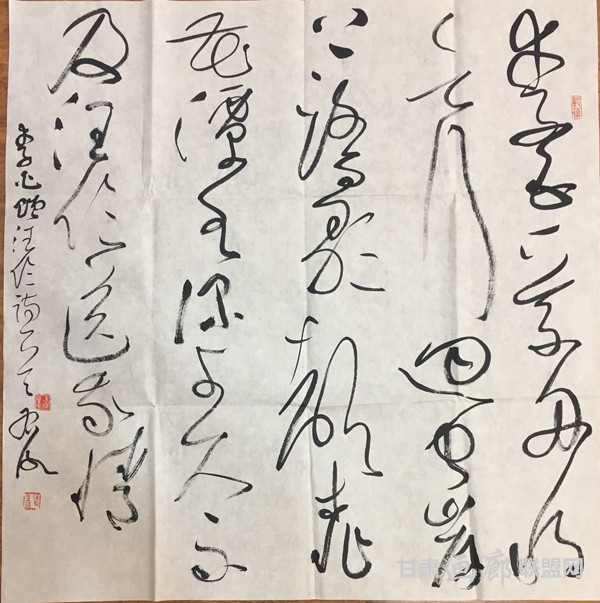 李白乘舟将
欲行忽闻岸
上踏歌声桃
花潭水深千尺不
及汪伦送我情
李白赠汪伦诗
甘肃画廊联盟网